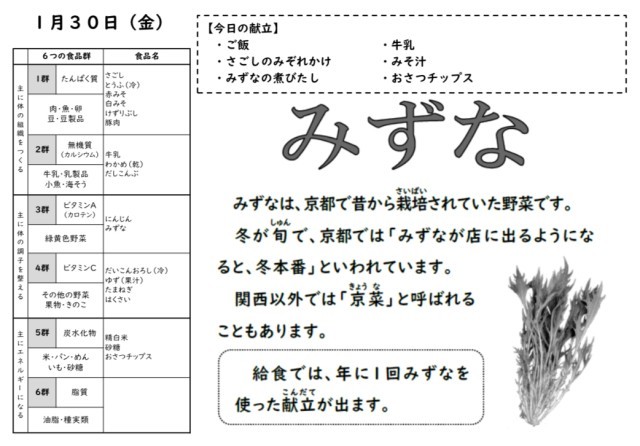 １月３０日（金）
６つの食品群
食品名
主に体の組織をつくる
１群
たんぱく質
肉・魚・卵
豆・豆製品
さごし
とうふ（冷）
赤みそ
白みそ
けずりぶし
豚肉
２群
無機質
（カルシウム）
牛乳・乳製品
小魚・海そう
牛乳
わかめ（乾）
だしこんぶ
主に体の調子を整える
３群
ビタミンA
（カロテン）
緑黄色野菜
にんじん
みずな
４群
ビタミンC
その他の野菜
果物・きのこ
だいこんおろし（冷）
ゆず（果汁）
たまねぎ
はくさい
主にエネルギーになる
５群
炭水化物
米・パン・めん
いも・砂糖
精白米
砂糖
おさつチップス
６群
脂質
油脂・種実類
【今日の献立】
・ご飯
・牛乳
・さごしのみぞれかけ
・みそ汁
・みずなの煮びたし
・おさつチップス
みずな
さいばい
みずなは、京都で昔から栽培されていた野菜です。
しゅん
冬が旬で、京都では「みずなが店に出るようにな
ると、冬本番」といわれています。
きょう な
関西以外では「京菜」と呼ばれる
こともあります。
給食では、年に１回みずなを
こんだて
使った献立が出ます。